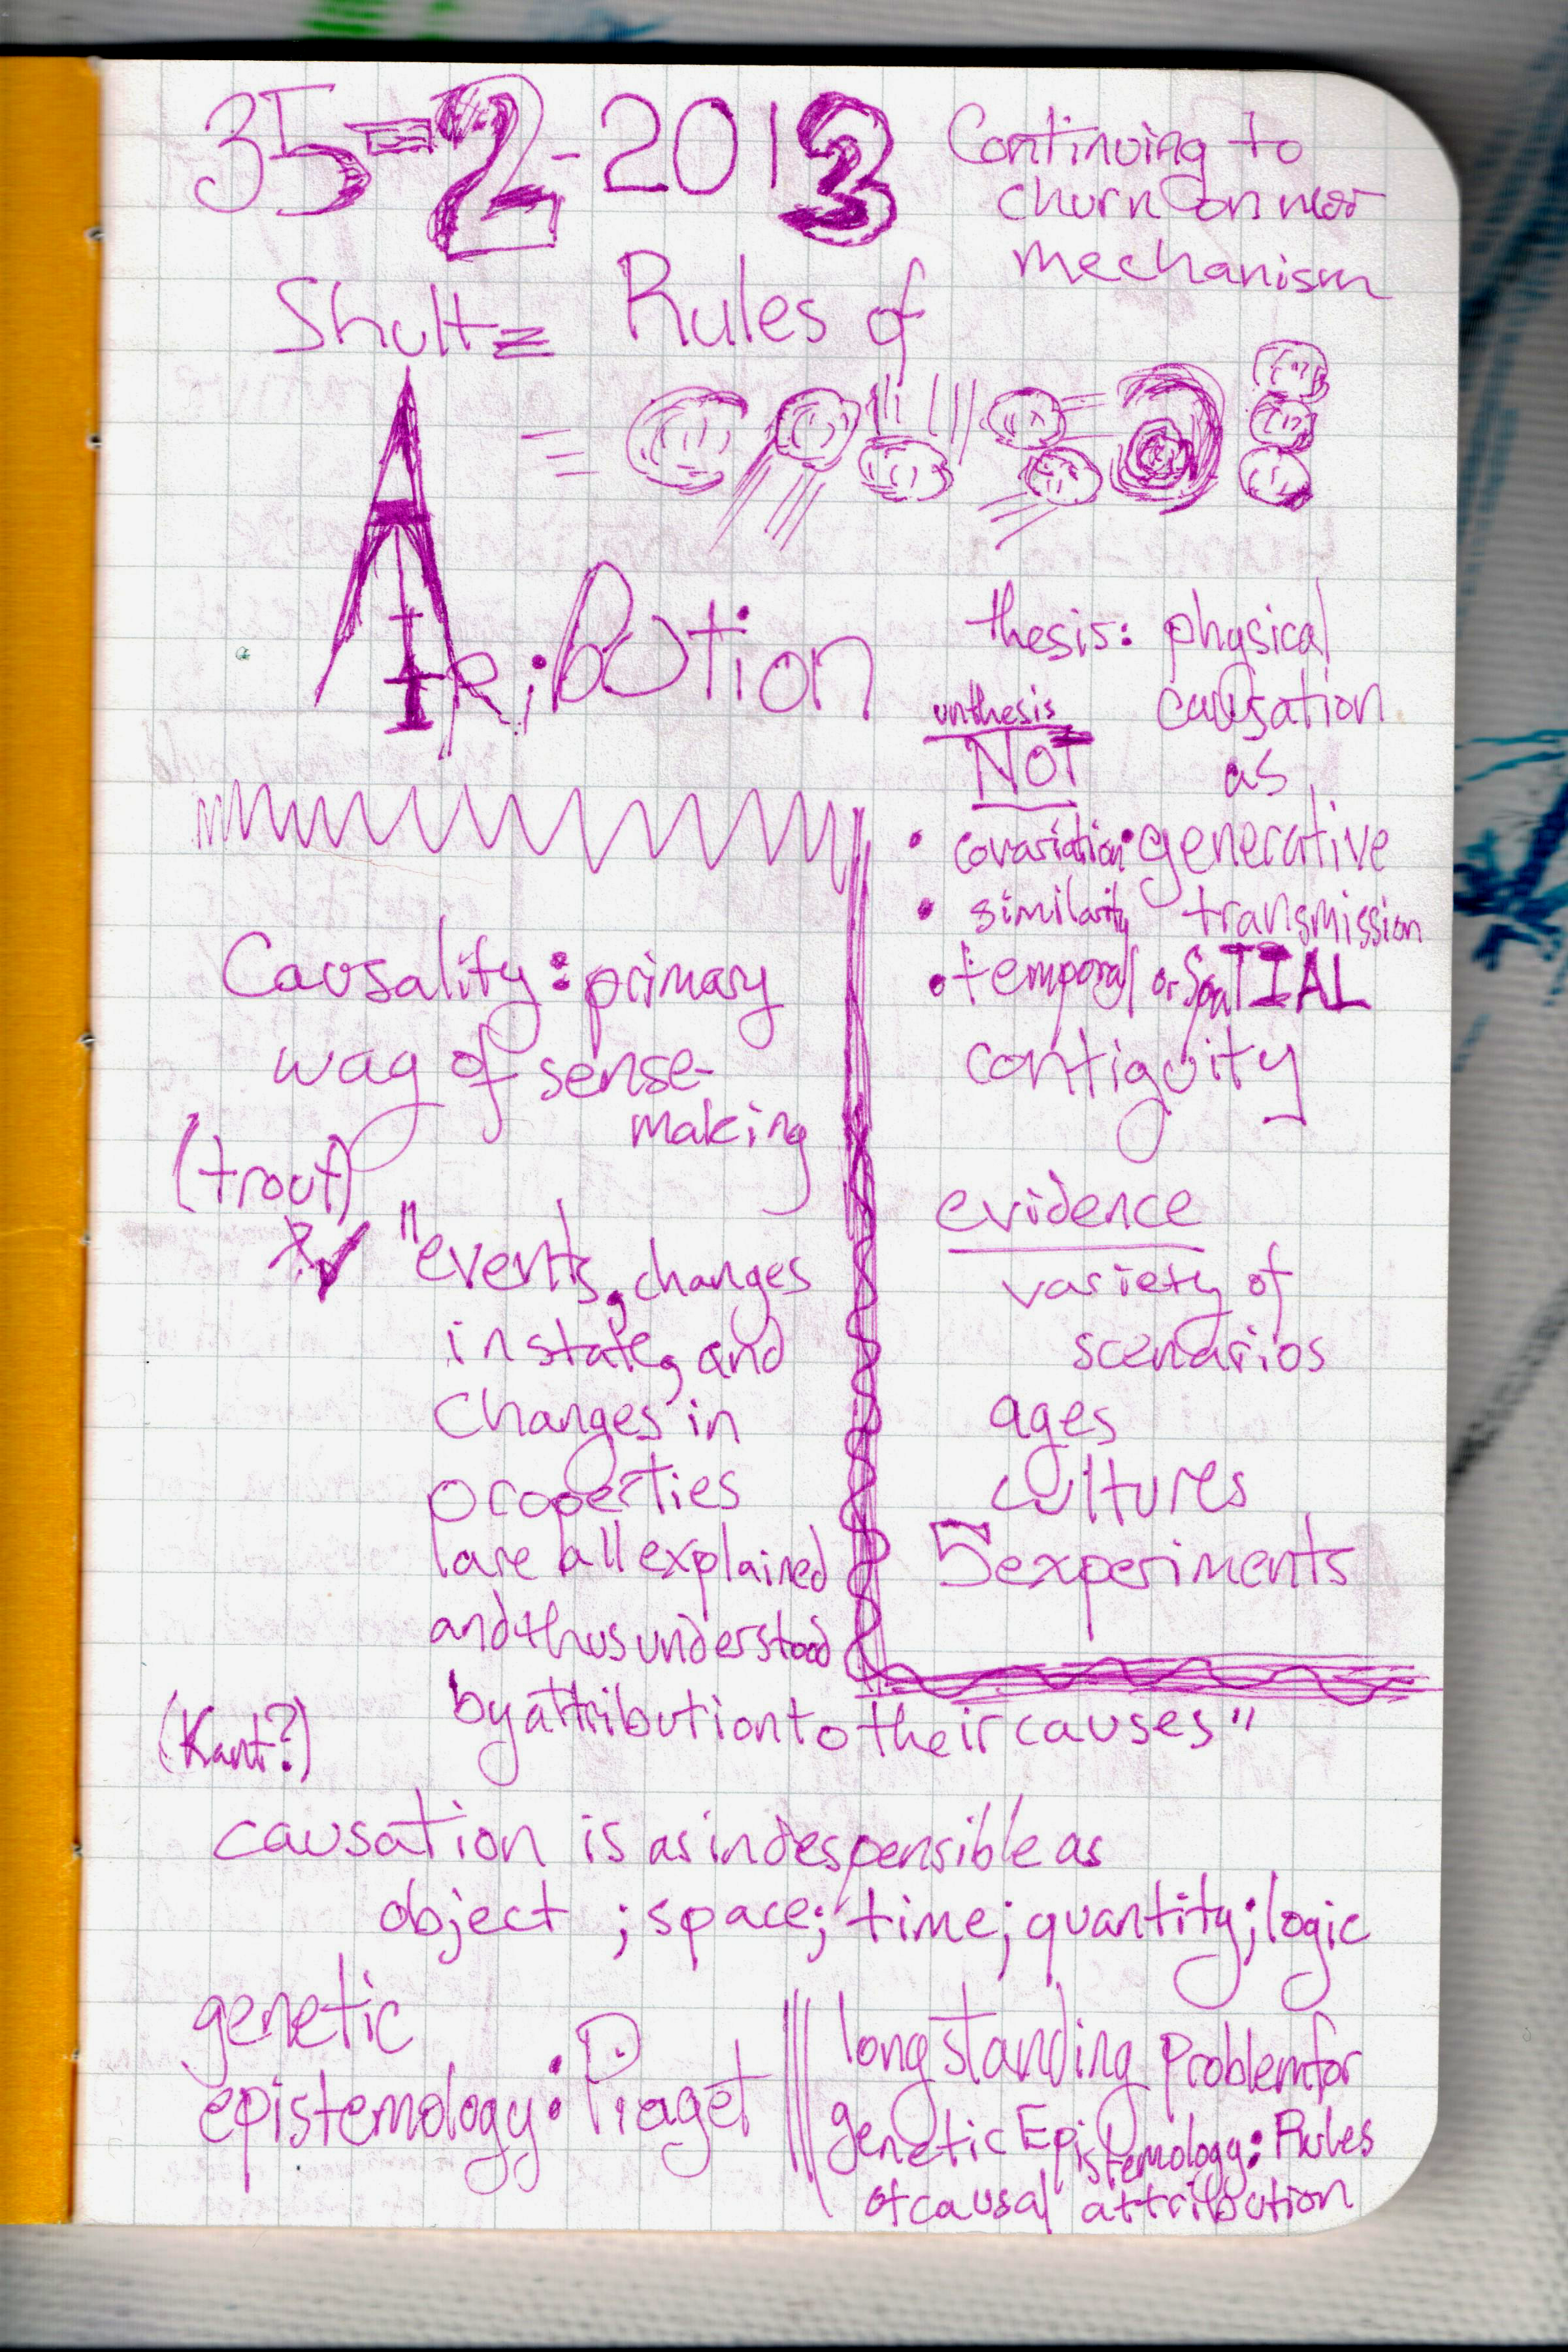 35-2-2013
Continuing to
churn on
mechanism
Shultz Rules of
Attribution
thesis: physical
causation
as
• generative
transmission
unthesis
NOT
• covariation
• similarity
• temporal or SpaTIAL
contiguity
evidence
variety of
scenarios
ages
cultures
5 experiments
Causality: primary
way of sense-
making
(trout)
"events, changes
in state, and
changes in
properties
are all explained
and thus understood
by attribution to their causes"
(Kant?)
causation is as indespensible as
object ; space; time; quantity; logic
genetic
epistemology: Piaget
long standing problem for
genetic Epistemology: Rules
of causal attribution